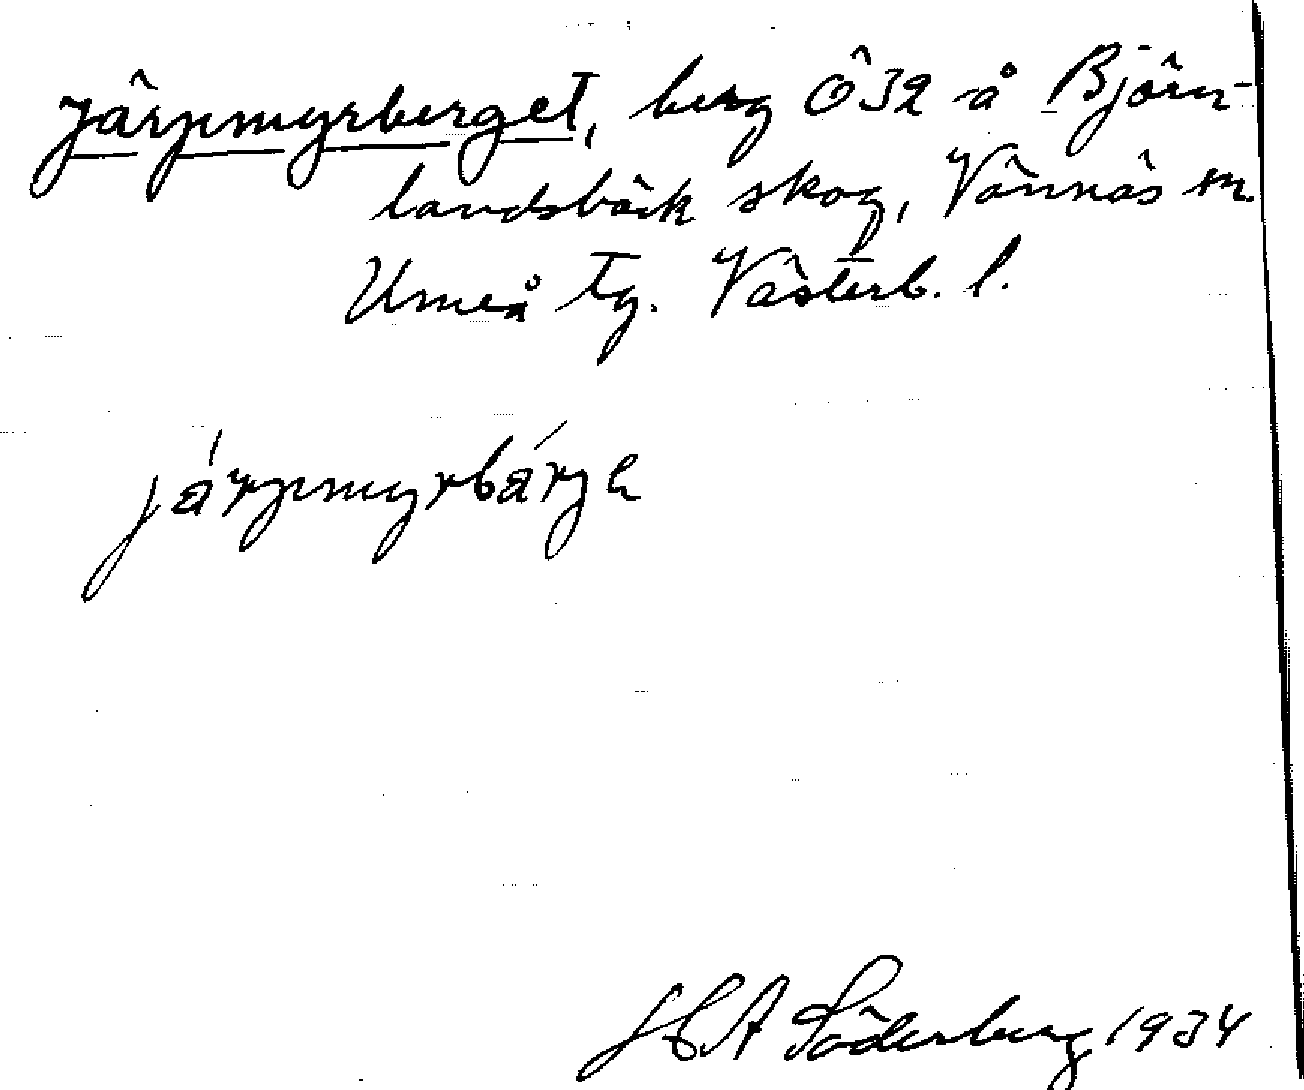 Järpmyrberget, berg Ö32 å Björn-
landsbäck skog, Vännäs sn.
Umeå tg. Västerb. l.
járpmyrbárje
H A Söderberg 1934